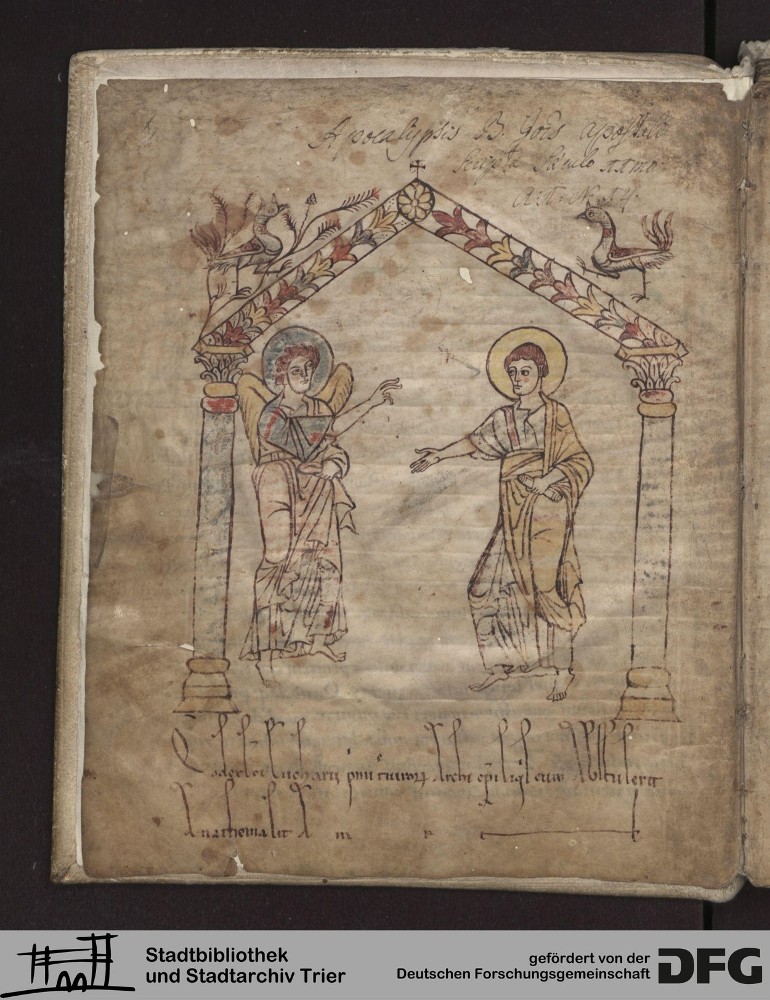 Apocalypsis B. Jois apostoli
scripta Seculo
Codex sci Eucharii primi trevirorum Archi epi si quis eum Abstulerit
Anathema sit Amen
Stadtbibliothek
und Stadtarchiv Trier
gefördert von der
Deutschen Forschungsgemeinschaft
DFG